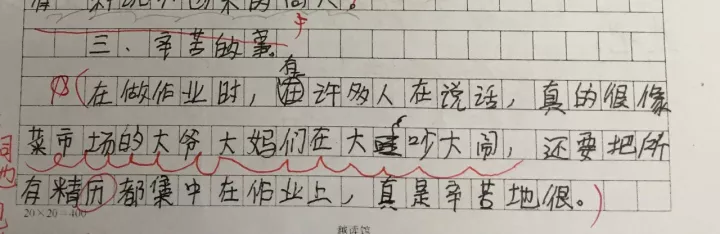 三、辛苦的
在做作业时，有许多人在说话，真的很像
菜市场的大爷大妈们在大吵大闹，还要把所
有精历都集中在作业上，真是辛苦地很。
20×20=400